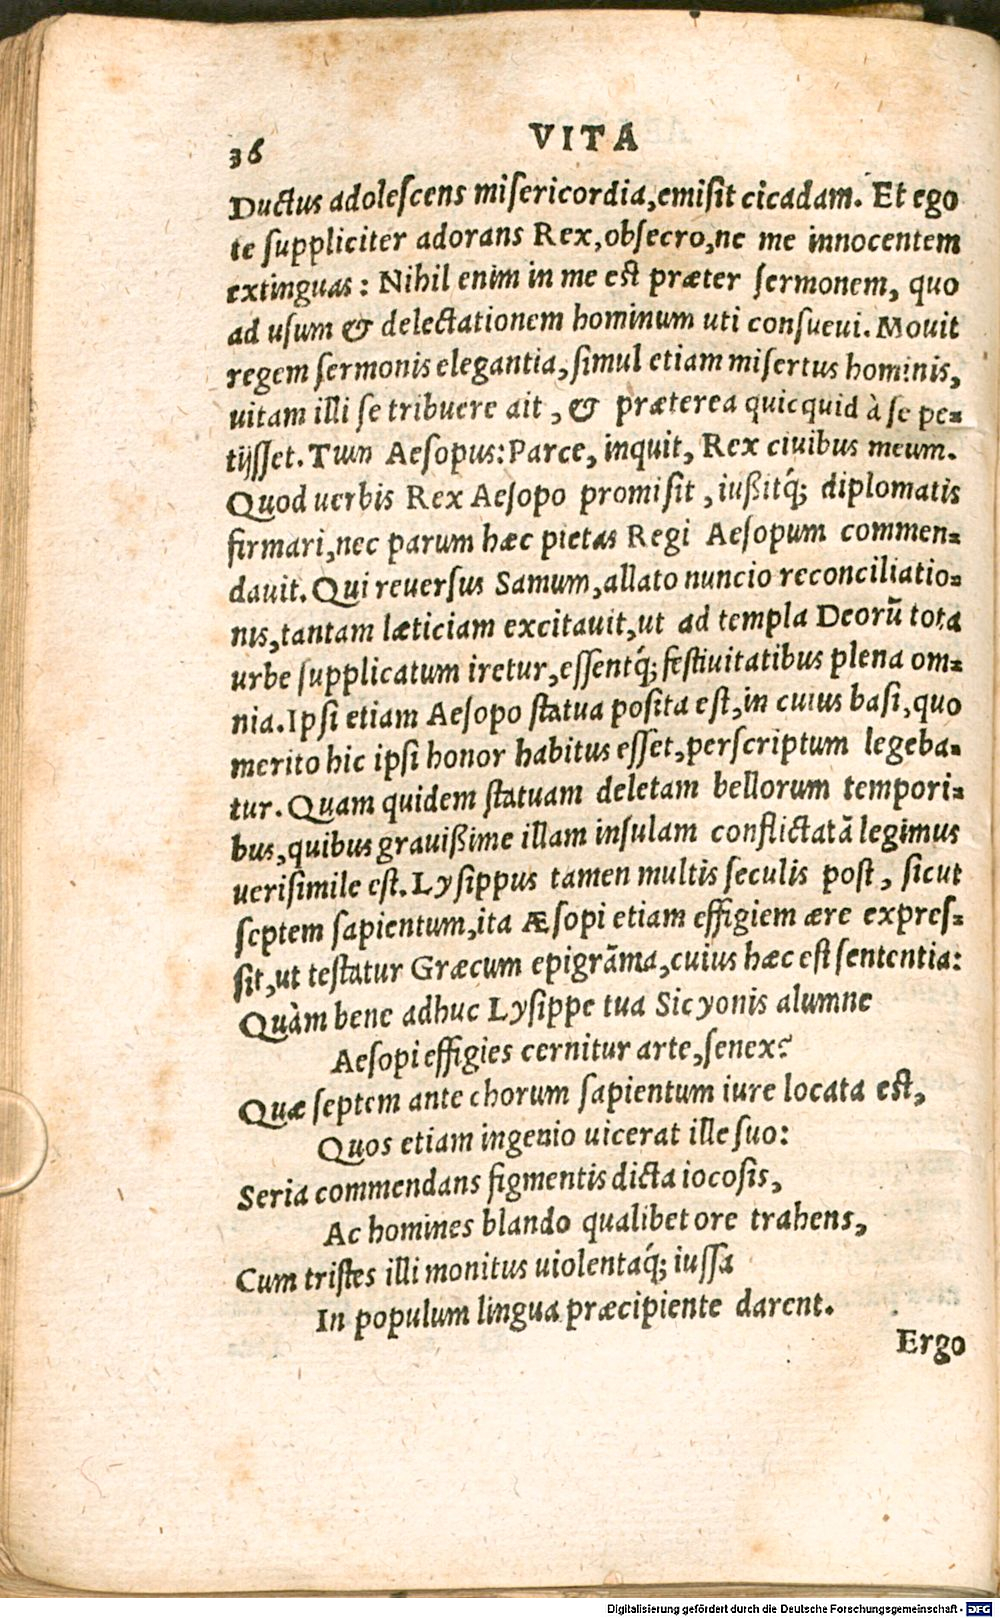 36 VITA
Ductus adolescens misericordia, emisit cicadam. Et ego
te suppliciter adorans Rex, obsecro, ne me innocentem
extinguas: Nihil enim in me est præter sermonem, quo
ad usum & delectationem hominum uti consueui. Mouit
regem sermonis elegantia, simul etiam misertus hominis,
uitam illi se tribuere ait, & præterea quicquid à se pe-
tijsset. Tum Aesopus: Parce, inquit, Rex ciuibus meum.
Quod uerbis Rex Aesopo promisit, iußitq́; diplomatis
firmari, nec parum hæc pietas Regi Aesopum commen-
dauit. Qui reuersus Samum, allato nuncio reconciliatio-
nis, tantam læticiam excitauit, ut ad templa Deorũ tota
urbe supplicatum iretur, essentq́; festiuitatibus plena om-
nia. Ipsi etiam Aesopo statua posita est, in cuius basi, quo
merito hic ipsi honor habitus esset, perscriptum legeba-
tur. Quam quidem statuam deletam bellorum tempori-
bus, quibus grauißime illam insulam conflictatã legimus
uerisimile est. Lysippus tamen multis seculis post, sicut
septem sapientum, ita Æsopi etiam effigiem ære expres-
sit, ut testatur Græcum epigrãma, cuius hæc est sententia:
Quàm bene adhuc Lysippe tua Sicyonis alumne
Aesopi effigies cernitur arte, senex?
Quæ septem ante chorum sapientum iure locata est,
Quos etiam ingenio uicerat ille suo:
Seria commendans figmentis dicta iocosis,
Ac homines blando qualibet ore trahens,
Cum tristes illi monitus uiolentaq́; iussa
In populum lingua præcipiente darent.
Ergo
Digitalisierung gefördert durch die Deutsche Forschungsgemeinschaft - DFG